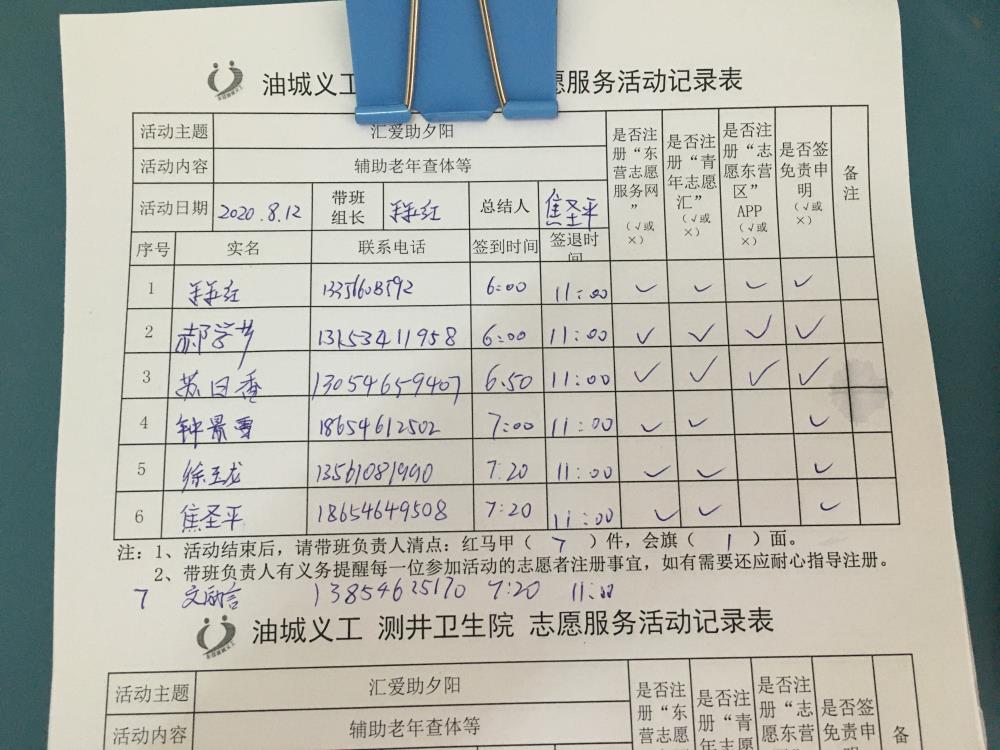 油城义工 愿服务活动记录表
活动主题 汇爱助夕阳 是否注册“东营志愿服务网”（√或×） 是否注册“青年志愿汇”（√或×） 是否注册“志愿东营区”APP（√或×） 是否签免责申明（√或×） 备注
活动内容 辅助老年查体等
活动日期 2020.8.12 带班组长 总结人 焦圣平
序号 实名 联系电话 签到时间 签退时间
1 6:00 11:00 ✓ ✓ ✓ ✓
2 13153411958 6:00 11:00 ✓ ✓ ✓ ✓
3 苏日香 13054659407 6:50 11:00 ✓ ✓ ✓ ✓
4 钟景雪 18654612502 7:00 11:00 ✓ ✓ ✓
5 徐玉龙 13561081990 7:20 11:00 ✓ ✓ ✓
6 焦圣平 18654649508 7:20 11:00 ✓ ✓ ✓
注：1、活动结束后，请带班负责人清点：红马甲（ 7 ）件，会旗（ 1 ）面。
2、带班负责人有义务提醒每一位参加活动的志愿者注册事宜，如有需要还应耐心指导注册。
7 13854625170 7:20 11:00
油城义工 测井卫生院 志愿服务活动记录表
活动主题 汇爱助夕阳 是否注册“东营志愿 是否注册“青年志愿 是否注册“志愿东营 是否签免责申明 备
活动内容 辅助老年查体等